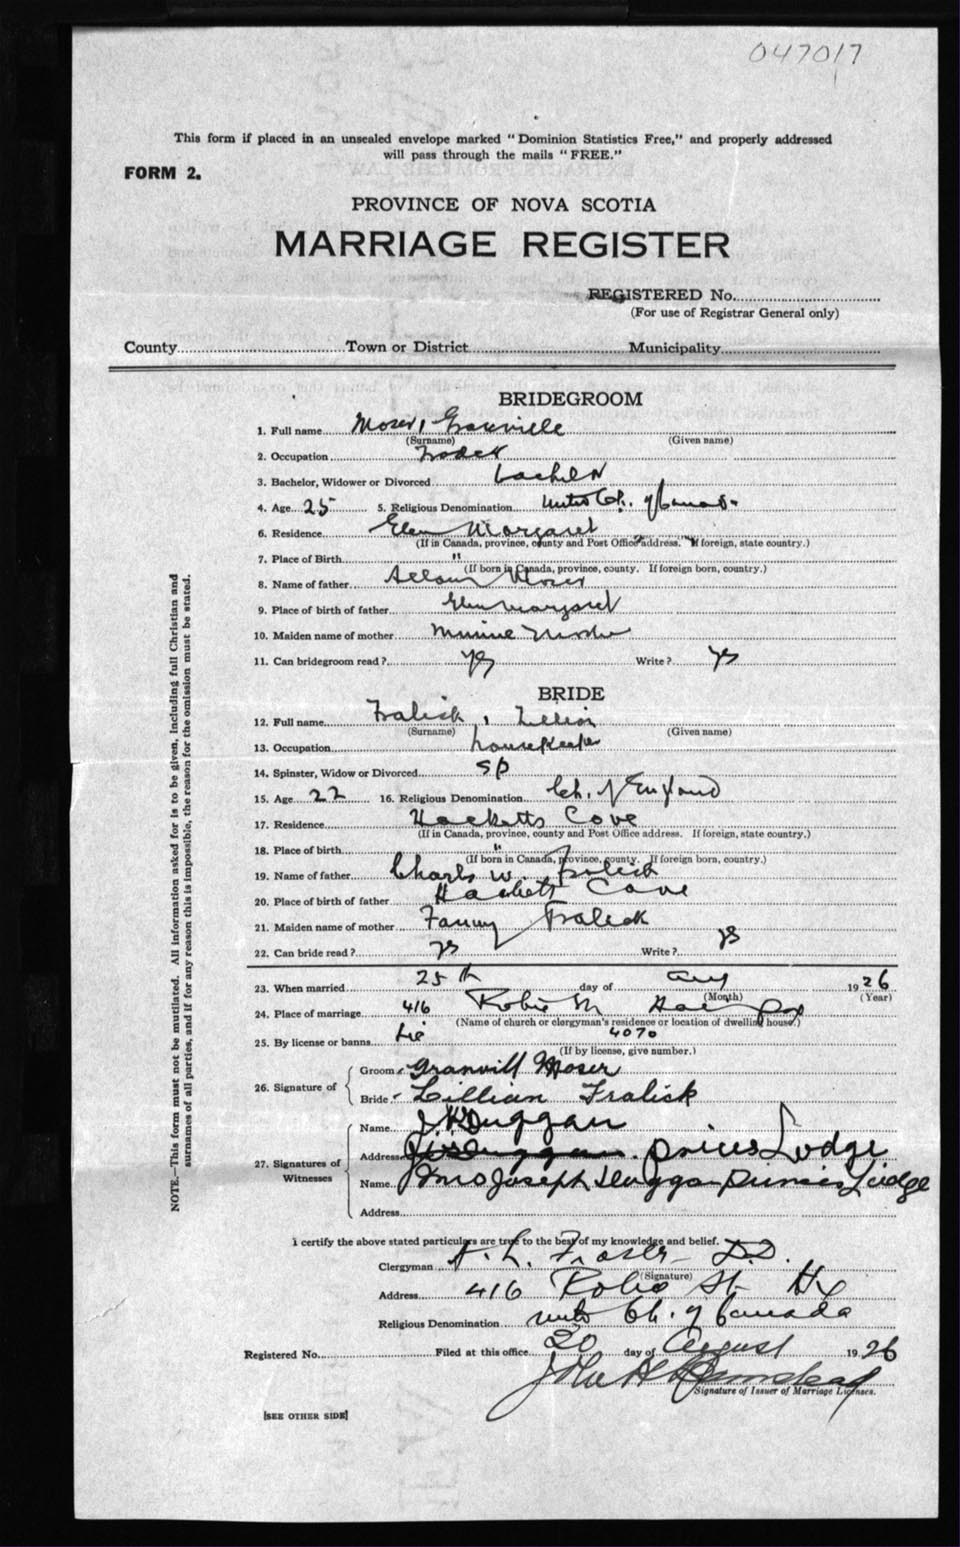 047017
This form if placed in an unsealed envelope marked "Dominion Statistics Free," and properly addressed
will pass through the mails "FREE."
FORM 2.
PROVINCE OF NOVA SCOTIA
MARRIAGE REGISTER
REGISTERED No.
(For use of Registrar General only)
County Town or District Municipality
BRIDEGROOM
1. Full name Moser, Granville
(Surname) (Given name)
2. Occupation
3. Bachelor, Widower or Divorced bachelor
4. Age 25 5. Religious Denomination United Ch. of Canada
6. Residence Glen Margaret
(If in Canada, province, county and Post Office address. If foreign, state country.)
7. Place of Birth "
(If born in Canada, province, county. If foreign born, country.)
8. Name of father Moser
9. Place of birth of father Glen Margaret
10. Maiden name of mother Minnie
11. Can bridegroom read? yes Write? yes
BRIDE
12. Full name Fralick, Lillian
(Surname) (Given name)
13. Occupation housekeeper
14. Spinster, Widow or Divorced sp
15. Age 22 16. Religious Denomination Ch. of England
17. Residence Hacketts Cove
(If in Canada, province, county and Post Office address. If foreign, state country.)
18. Place of birth "
(If born in Canada, province, county. If foreign born, country.)
19. Name of father Charles W. Fralick
20. Place of birth of father Hacketts Cove
21. Maiden name of mother Fanny Fralick
22. Can bride read? yes Write? yes
23. When married 25th day of Aug 1926
(Month) (Year)
24. Place of marriage 416 Robie St
(Name of church or clergyman's residence or location of dwelling house.)
25. By license or banns Lic 4070
(If by license, give number.)
26. Signature of
Groom Granvill Moser
Bride Lillian Fralick
27. Signatures of Witnesses
Name Duggan
Address Lodge
Name Joseph Duggan Lodge
Address
I certify the above stated particulars are true to the best of my knowledge and belief.
Clergyman Fraser D.D.
(Signature)
Address 416 Robie St Hx
Religious Denomination United Ch. of Canada
Registered No. Filed at this office 20 day of August 1926
John H
Signature of Issuer of Marriage Licenses.
[SEE OTHER SIDE]
NOTE.—This form must not be mutilated. All information asked for is to be given, including full Christian and
surnames of all parties, and if for any reason this is impossible, the reason for the omission must be stated.